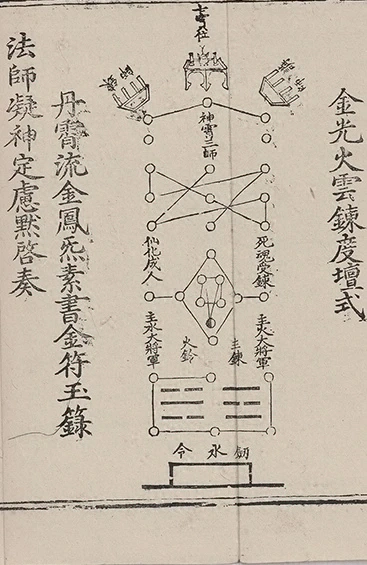 金光火雲鍊度壇式
神霄三師
死魂受鍊
仙化成人
主火大將軍
主鍊
火鈴
主水大將軍
令水劒
丹霄流金鳳炁素書金符玉籙
法師凝神定慮默啓奏